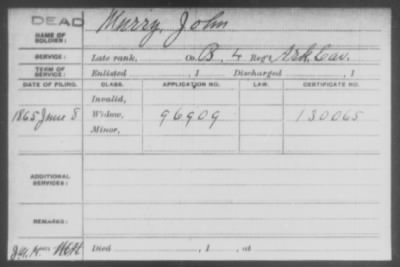 DEAD
NAME OF SOLDIER: Murry, John
SERVICE: Late rank, Co. B, 4 Reg't Ark. Cav.
TERM OF SERVICE: Enlisted , 1 Discharged , 1
DATE OF FILING. CLASS. APPLICATION NO. LAW. CERTIFICATE NO.
Invalid,
1865 June 8 Widow, 96909 130065
Minor,
ADDITIONAL SERVICES:
REMARKS:
Died , 1 , at